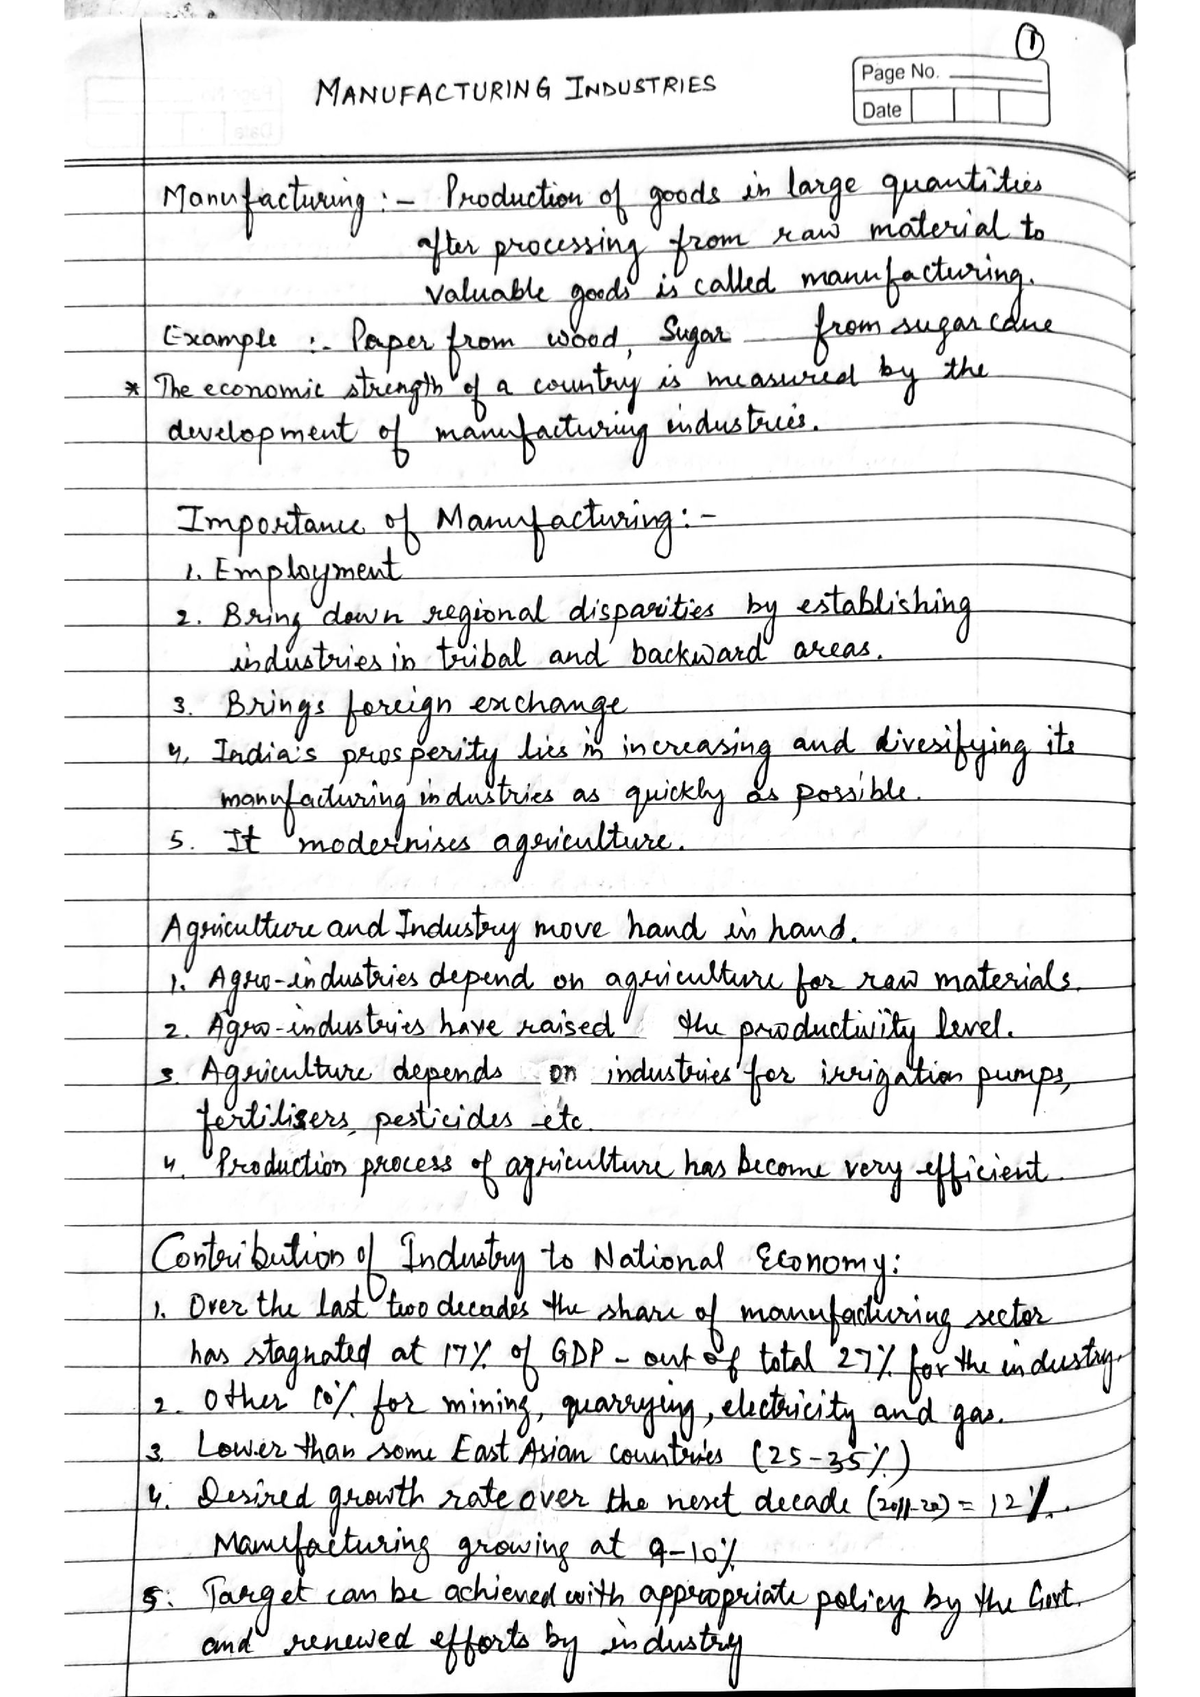 1
MANUFACTURING INDUSTRIES
Page No.
Date
Manufacturing :- Production of goods in large quantities
after processing from raw material to
valuable goods is called manufacturing.
Example :- Paper from wood, Sugar from sugarcane
* The economic strength of a country is measured by the
development of manufacturing industries.
Importance of Manufacturing:-
1. Employment
2. Bring down regional disparities by establishing
industries in tribal and backward areas.
3. Brings foreign exchange
4. India's prosperity lies in increasing and divesifying its
manufacturing industries as quickly as possible.
5. It modernises agriculture.
Agriculture and Industry move hand in hand.
1. Agro-industries depend on agriculture for raw materials.
2. Agro-industries have raised the productivity level.
3. Agriculture depends on industries for irrigation pumps,
fertilisers, pesticides etc.
4. Production process of agriculture has become very efficient.
Contribution of Industry to National Economy:
1. Over the last two decades the share of manufacturing sector
has stagnated at 17% of GDP - out of total 27% for the industry.
2. Other 10% for mining, quarrying, electricity and gas.
3. Lower than some East Asian countries (25-35%)
4. Desired growth rate over the next decade (2011-20) = 12%.
Manufacturing growing at 9-10%
5. Target can be achieved with appropriate policy by the Govt.
and renewed efforts by industry